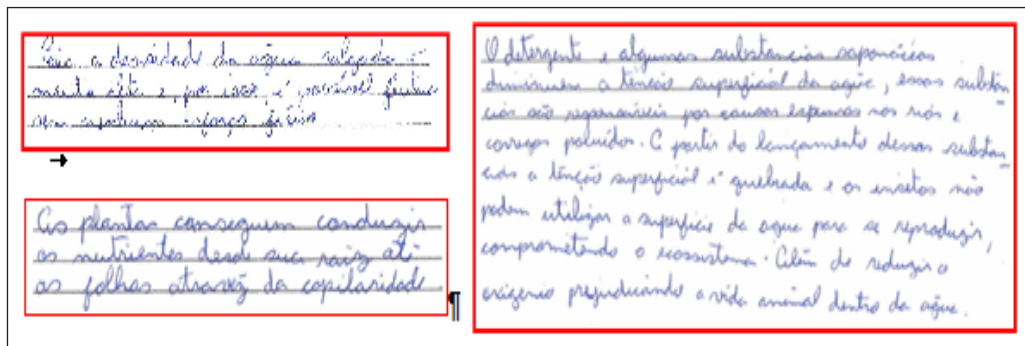 Pois a densidade da água salgada é
muito alta e, por isso, é possível flutuar
sem nenhum esforço físico
→
As plantas conseguem conduzir
os nutrientes desde sua raiz até
as folhas atravéz da capilaridade
¶
O detergente e algumas substancias saponáceas
diminuem a tenção superficial da água, essas substan
cias são responsáveis por causar espumas nos rios e
corregos poluídos. A partir do lançamento dessas substan
cias a tenção superficial é quebrada e os insetos não
podem utilizar a superfície da agua para se reproduzir,
comprometendo o ecossistema. Além de reduzir o
oxigenio prejudicando a vida animal dentro da água.